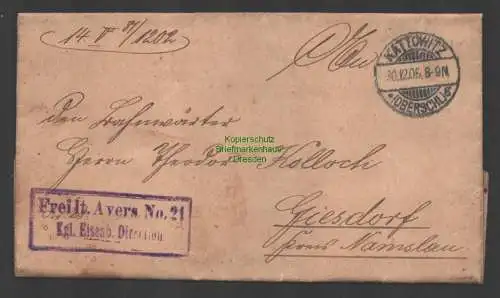 14 V 81/1202
KATTOWITZ
30.12.06. 8-9N
*(OBERSCHL)*
den Bahnwärter
Herrn Theodor Kolloch
Giesdorf
Kreis Namslau
Kopierschutz
Briefmarkenhaus
Dresden
Frei lt. Avers No. 21
Kgl. Eisenb. Direction